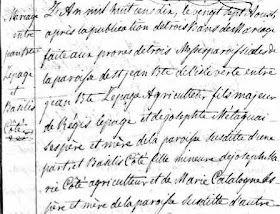 Mariage
entre
jean Bte
Lepage
et Basilis
Côté
L'An mil huit cens dix, le vingt sept Août,
après la publication de trois Bans de Mariage
faite aux prones de trois Messes paroissiales de
la paroisse de st jean Bte de l'isle verte entre
jean Bte Lepage Agriculteur, fils majeur
de Régis Lepage et de josephte Métaguai
ses père et mère de la paroisse susdite d'une
part et Basilis Côté fille mineure de joseph Ma
rie Côté agriculteur et de Marie Catalogne ses
père et mère de la paroisse susdite d'autre